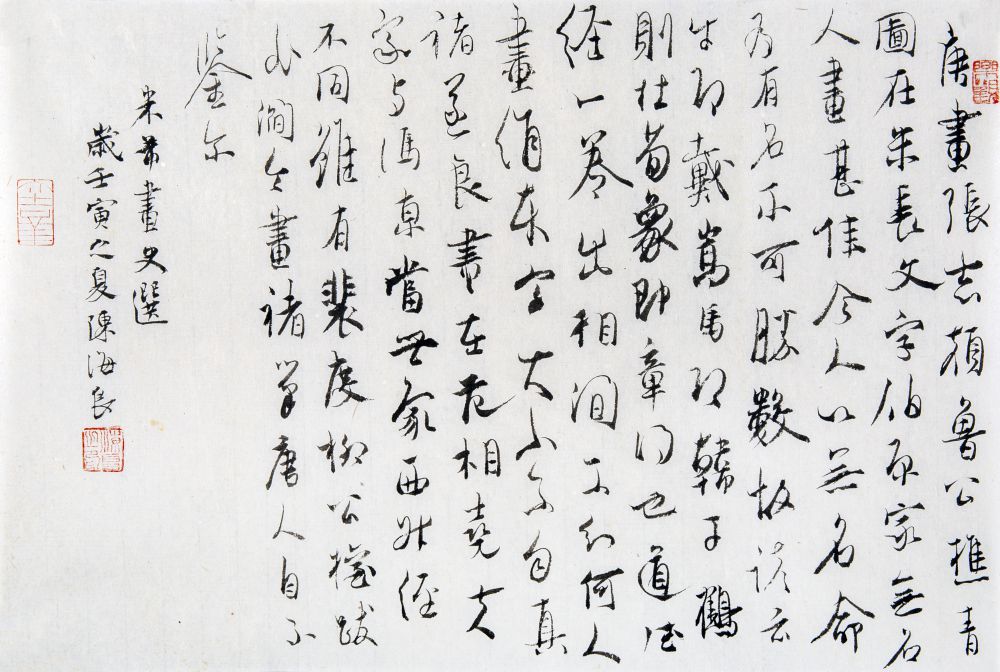 唐畫張志顏魯公樵青
圖在朱長文字伯原家無名
人畫甚佳今人以無名命
為有名不可勝數故諺云
牛即戴嵩馬即韓干鶴
則杜荀象即章得也道德
經一卷出相間不知何人
畫絹本字大小不匀真
褚遂良書在范相堯夫
家与馮京當世家西昇經
不同雖有裴度柳公權跋
非閻令畫褚筆唐人自不
鑒尔
米芾畫史選
歲壬寅之夏陳海良